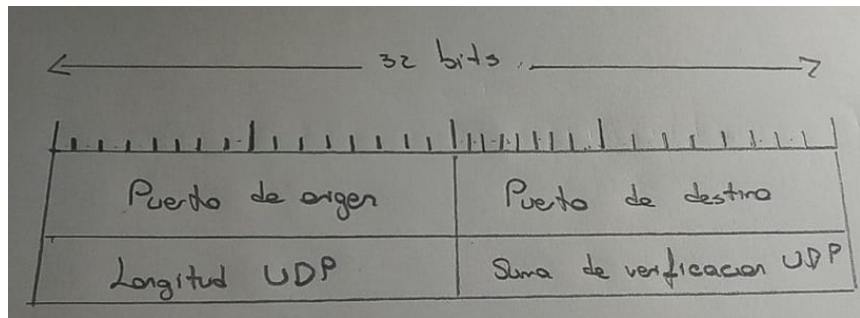 32 bits
Puerto de origen Puerto de destino
Longitud UDP Suma de verificacion UDP